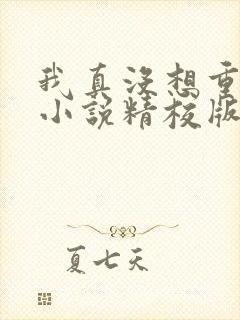 我真没想重
小说精校版
夏七天